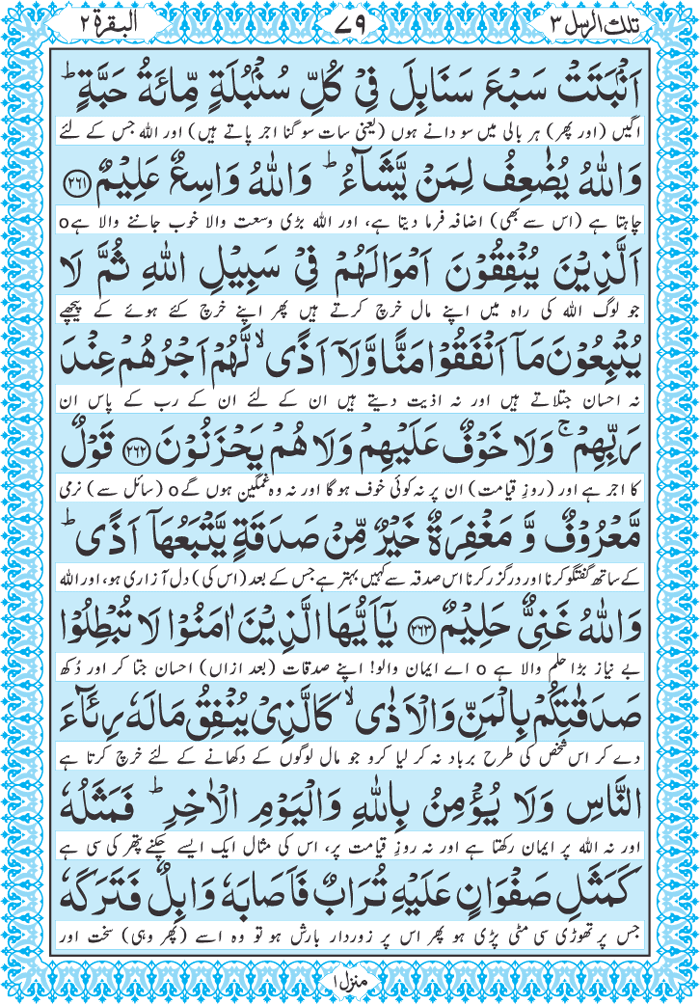 تلك الرسل ٣
٧٩
البقرة ٢
اَنْۢبَتَتْ سَبْعَ سَنَابِلَ فِيْ كُلِّ سُنْۢبُلَةٍ مِّائَةُ حَبَّةٍ ؕ
اگیں (اور پھر) ہر بالی میں سو دانے ہوں (یعنی سات سو گنا اجر پاتے ہیں) اور اللہ جس کے لئے
وَاللّٰهُ يُضٰعِفُ لِمَنْ يَّشَآءُ ؕ وَاللّٰهُ وَاسِعٌ عَلِيْمٌ ﴿٢٦١﴾
چاہتا ہے (اس سے بھی) اضافہ فرما دیتا ہے، اور اللہ بڑی وسعت والا خوب جاننے والا ہے o
اَلَّذِيْنَ يُنْفِقُوْنَ اَمْوَالَهُمْ فِيْ سَبِيْلِ اللّٰهِ ثُمَّ لَا
جو لوگ اللہ کی راہ میں اپنے مال خرچ کرتے ہیں پھر اپنے خرچ کئے ہوئے کے پیچھے
يُتْبِعُوْنَ مَآ اَنْفَقُوْا مَنًّا وَّلَآ اَذًى ۙ لَّهُمْ اَجْرُهُمْ عِنْدَ
نہ احسان جتلاتے ہیں اور نہ اذیت دیتے ہیں ان کے لئے ان کے رب کے پاس ان
رَبِّهِمْ ۚ وَلَا خَوْفٌ عَلَيْهِمْ وَلَا هُمْ يَحْزَنُوْنَ ﴿٢٦٢﴾ قَوْلٌ
کا اجر ہے اور (روزِ قیامت) ان پر نہ کوئی خوف ہوگا اور نہ وہ غمگین ہوں گے o (سائل سے) نرمی
مَّعْرُوْفٌ وَّ مَغْفِرَةٌ خَيْرٌ مِّنْ صَدَقَةٍ يَّتْبَعُهَآ اَذًى ؕ
کے ساتھ گفتگو کرنا اور درگزر کرنا اس صدقہ سے کہیں بہتر ہے جس کے بعد (اس کی) دل آزاری ہو، اور اللہ
وَاللّٰهُ غَنِيٌّ حَلِيْمٌ ﴿٢٦٣﴾ يٰٓاَيُّهَا الَّذِيْنَ اٰمَنُوْا لَا تُبْطِلُوْا
بے نیاز بڑا حلم والا ہے o اے ایمان والو! اپنے صدقات (بعد ازاں) احسان جتا کر اور دُکھ
صَدَقٰتِكُمْ بِالْمَنِّ وَالْاَذٰى ۙ كَالَّذِيْ يُنْفِقُ مَالَهٗ رِئَآءَ
دے کر اس شخص کی طرح برباد نہ کر لیا کرو جو مال لوگوں کے دکھانے کے لئے خرچ کرتا ہے
النَّاسِ وَلَا يُؤْمِنُ بِاللّٰهِ وَالْيَوْمِ الْاٰخِرِ ؕ فَمَثَلُهٗ
اور نہ اللہ پر ایمان رکھتا ہے اور نہ روزِ قیامت پر، اس کی مثال ایک ایسے چکنے پتھر کی سی ہے
كَمَثَلِ صَفْوَانٍ عَلَيْهِ تُرَابٌ فَاَصَابَهٗ وَابِلٌ فَتَرَكَهٗ
جس پر تھوڑی سی مٹی پڑی ہو پھر اس پر زوردار بارش ہو تو وہ اسے (پھر وہی) سخت اور
منزل ١